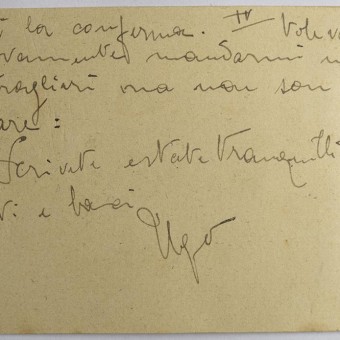 la conferma. IV Volev
vamente mandarmi
ma non son
are:
Scrivete e state tranquilli
ti e baci
Ugo